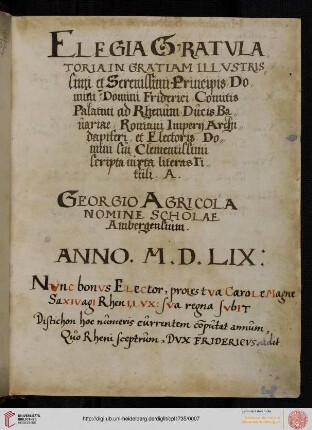 ELEGIA GRATVLA
TORIA IN GRATIAM ILLVSTRIS
simi et Serenissimi Principis Do
mini Domini Friderici Comitis
Palatini ad Rhenum Ducis Ba
uariae, Romani Imperij Archi
dapiferi et Electoris Do
mini sui Clementissimi
scripta iuxta literas Ti
tuli. A.
GEORGIO AGRICOLA
NOMINE SCHOLAE
Ambergensium.
ANNO. M. D. LIX:
NVnc bonVs ELector, proles tVa CaroLe Magne
SaXIVagi Rhen I LVX: sVa regna sVbIT
Distichon hoc numeris currentem computat annum,
Quo Rheni sceptrum, DVX FRIDERICVS, adit
http://digi.ub.uni-heidelberg.de/diglit/cpl1735/0007